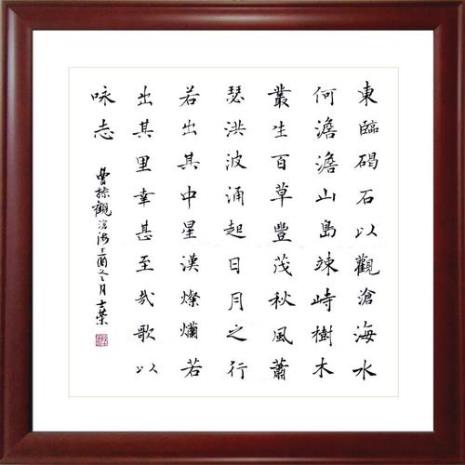 東臨碣石以觀滄海水
何澹澹山島竦峙樹木
叢生百草豐茂秋風蕭
瑟洪波涌起日月之行
若出其中星漢燦爛若
出其里幸甚至哉歌以
咏志
曹操觀滄海丁酉冬月士荣